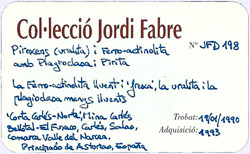 Col·lecció Jordi Fabre
Piroxens (uralita) i Ferro-actinolita
Nº JFD 198
amb Plagioclasa i Pirita
La Ferro-actinolita lluent i fresca, la uralita i la
plagioclasa menys lluents
"Corta Carlés-Norte", Mina Carlés
Bellsital-El Furaco, Carlés, Salas,
Comarca Valle del Narcea,
Principado de Asturias, España
Trobat: 19/01/1990
Adquisició: 1993